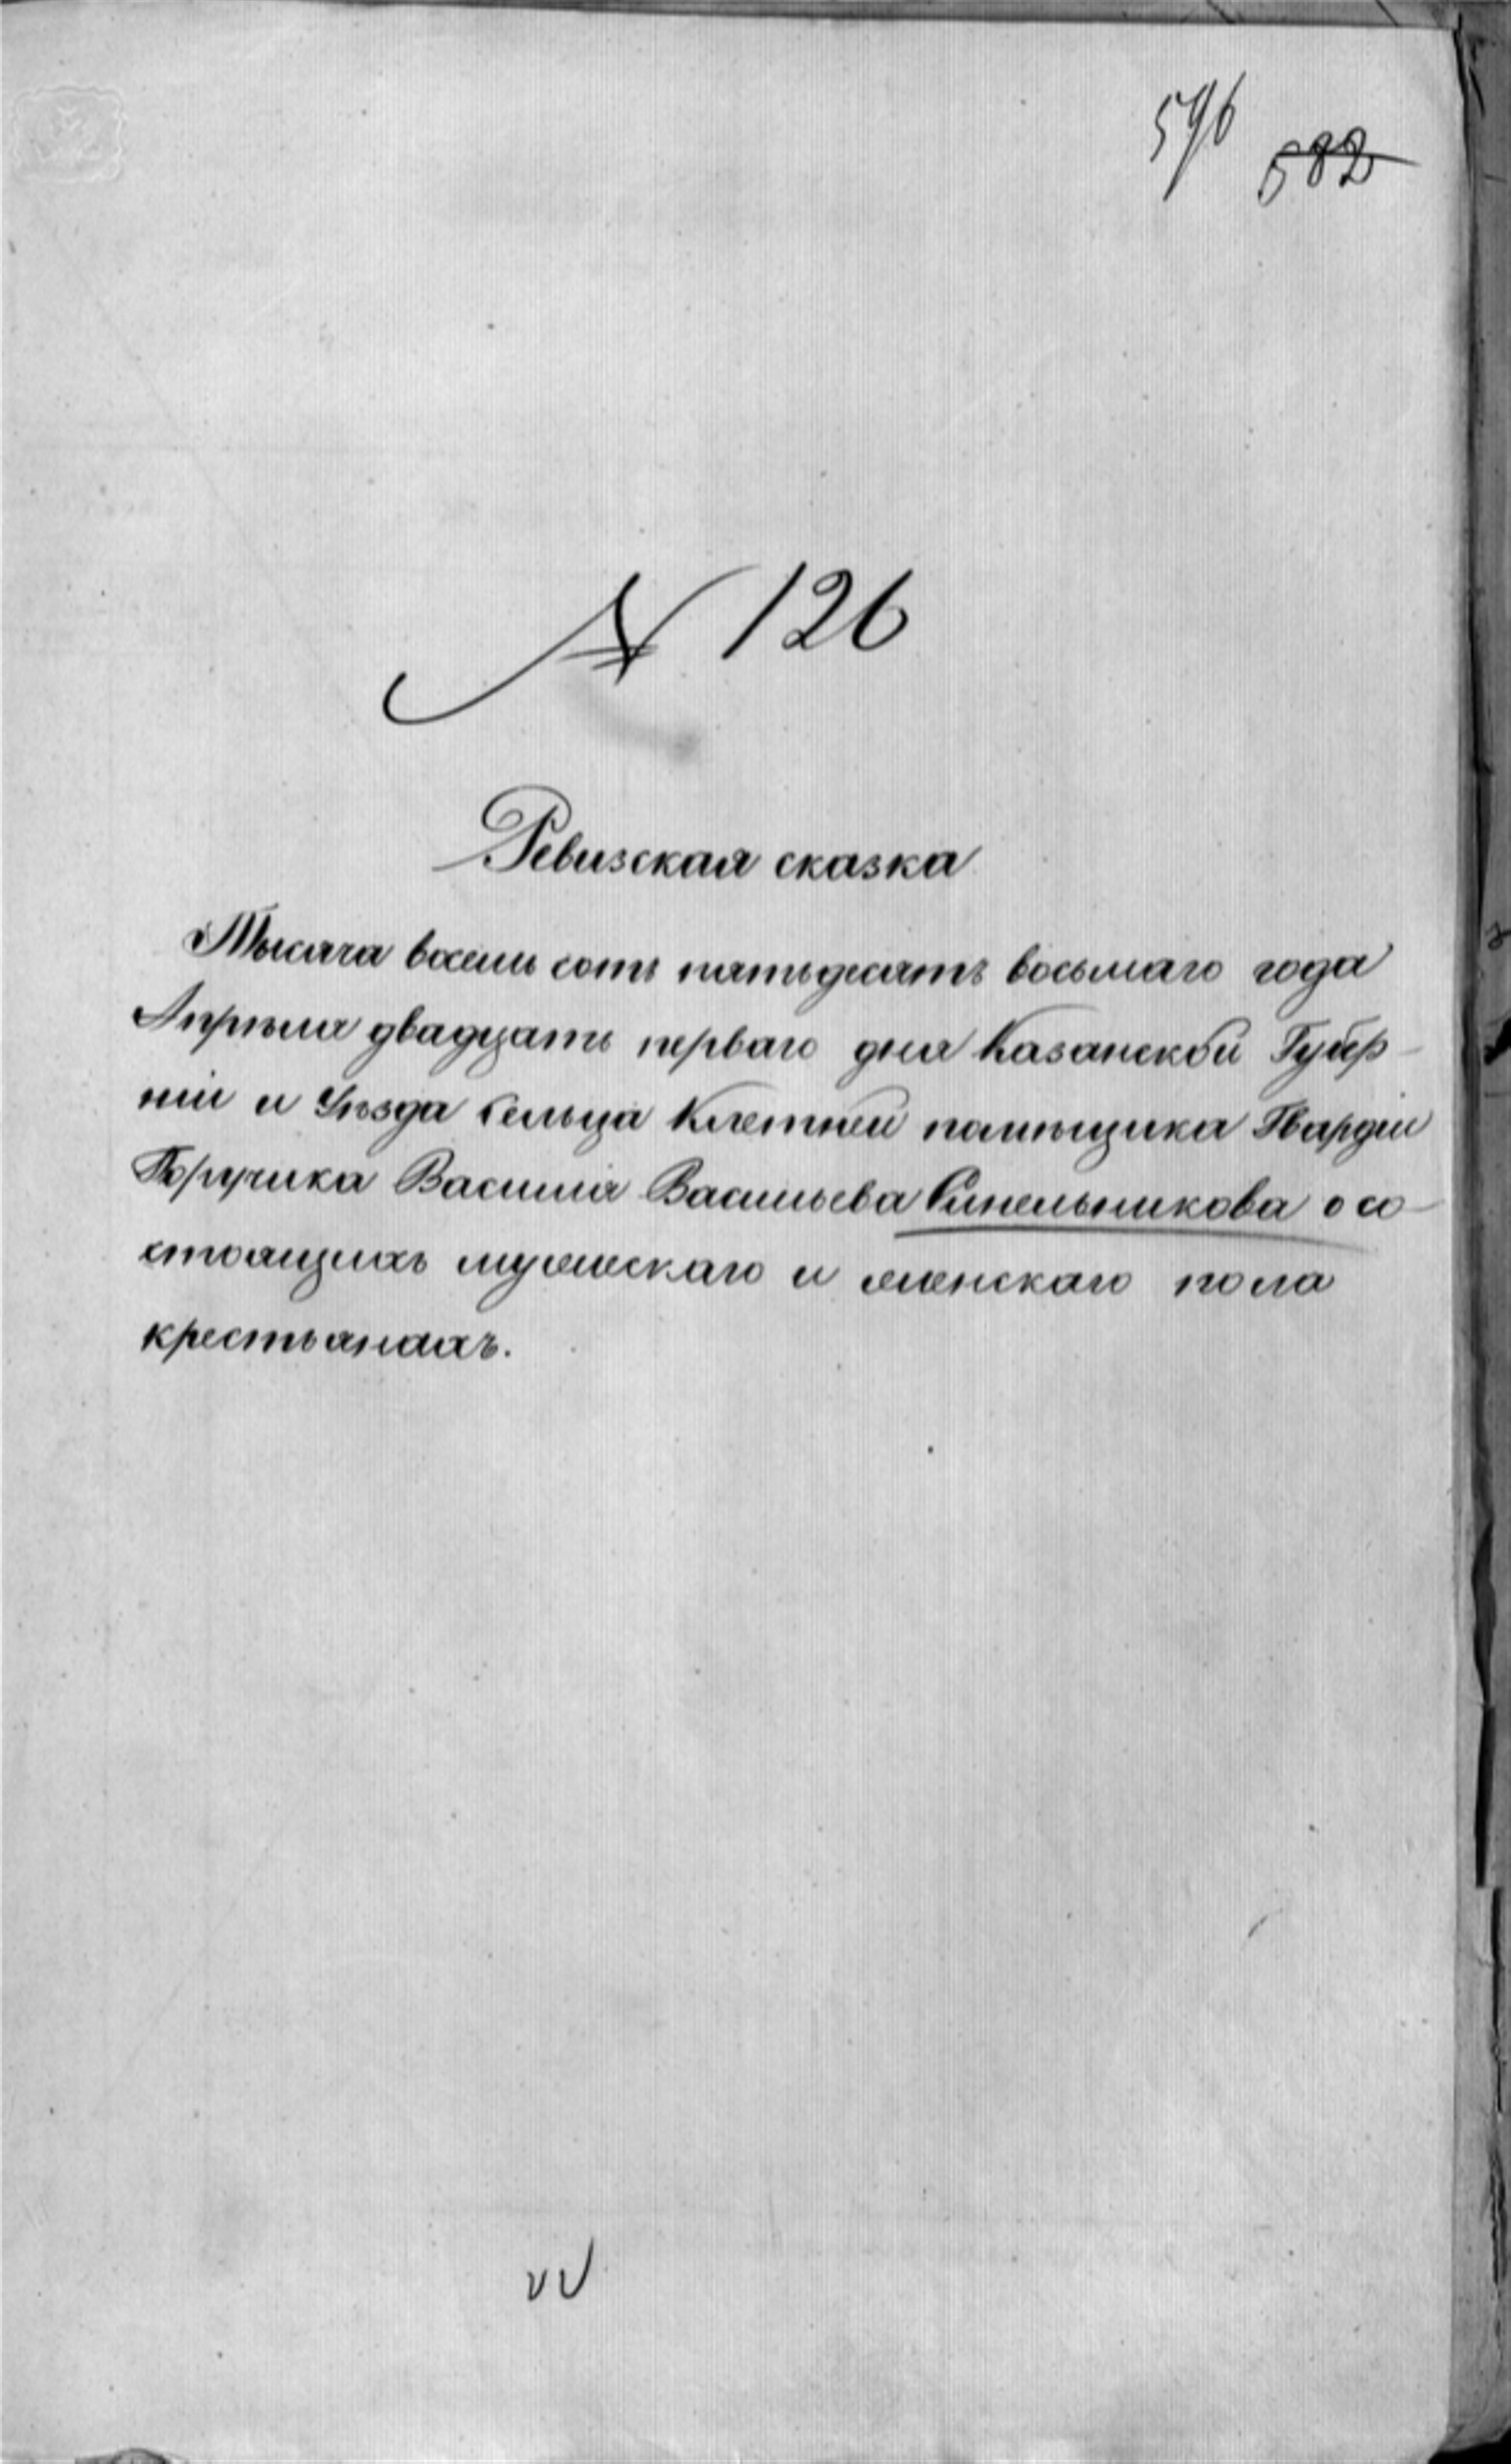 596
582
№ 126
Ревизская сказка
Тысяча восемь сотъ пятьдесятъ восьмаго года
Апрѣля двадцать перваго дня Казанской Губер-
ніи и Уѣзда сельца Клетней помѣщика Гвардіи
Поручика Василія Васильева Синельникова о со-
стоящихъ мужескаго и женскаго пола
крестьянахъ.